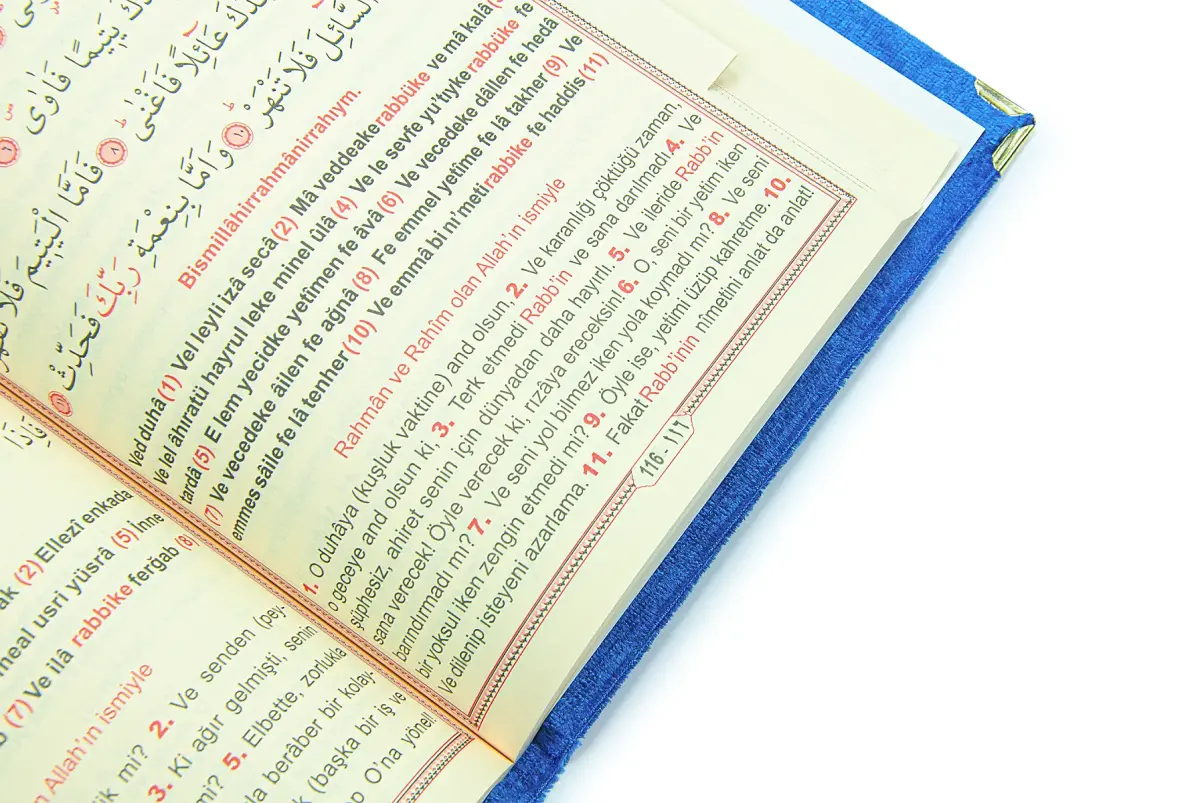 يَتِيمًا فَاٰوٰى
عَائِلًا فَاَغْنٰى ﴿٨﴾ فَاَمَّا الْيَتِيمَ فَلَا
السَّائِلَ فَلَا تَنْهَرْ ﴿١٠﴾ وَاَمَّا بِنِعْمَةِ رَبِّكَ فَحَدِّثْ ﴿١١﴾
Bismillâhirrahmânirrahıym.
Ved duhâ (1) Vel leyli izâ secâ (2) Mâ veddeake rabbüke ve mâ kalâ
Ve lel âhıratü hayrul leke minel ûlâ (4) Ve le sevfe yu'tıyke rabbüke fe
tardâ (5) E lem yecidke yetîmen fe âvâ (6) Ve vecedeke dâllen fe hedâ
(7) Ve vecedeke âilen fe ağnâ (8) Fe emmel yetîme fe lâ takher (9) Ve
emmes sâile fe lâ tenher (10) Ve emmâ bi ni'meti rabbike fe haddis (11)
Rahmân ve Rahîm olan Allah'ın ismiyle
1. O duhâya (kuşluk vaktine) and olsun. 2. Ve karanlığı çöktüğü zaman,
o geceye and olsun ki, 3. Terk etmedi Rabb'in ve sana darılmadı. 4. Ve
şüphesiz, ahiret senin için dünyadan daha hayırlı. 5. Ve ileride Rabb'in
sana verecek! Öyle verecek ki, rızâya ereceksin! 6. O, seni bir yetim iken
barındırmadı mı? 7. Ve seni yol bilmez iken yola koymadı mı? 8. Ve seni
bir yoksul iken zengin etmedi mi? 9. Öyle ise, yetimi üzüp kahretme. 10.
Ve dilenip isteyeni azarlama. 11. Fakat Rabb'inin nîmetini anlat da anlat!
116 - ١١٦
فَاِذَا
(2) Ellezî enkada
meal usri yüsrâ (5) İnne
(7) Ve ilâ rabbike ferğab (8)
Allah'ın ismiyle
mi? 2. Ve senden (pey-
3. Ki ağır gelmişti, senin
mi? 5. Elbette, zorlukla
berâber bir kolay-
(başka bir iş ve
O'na yönel!